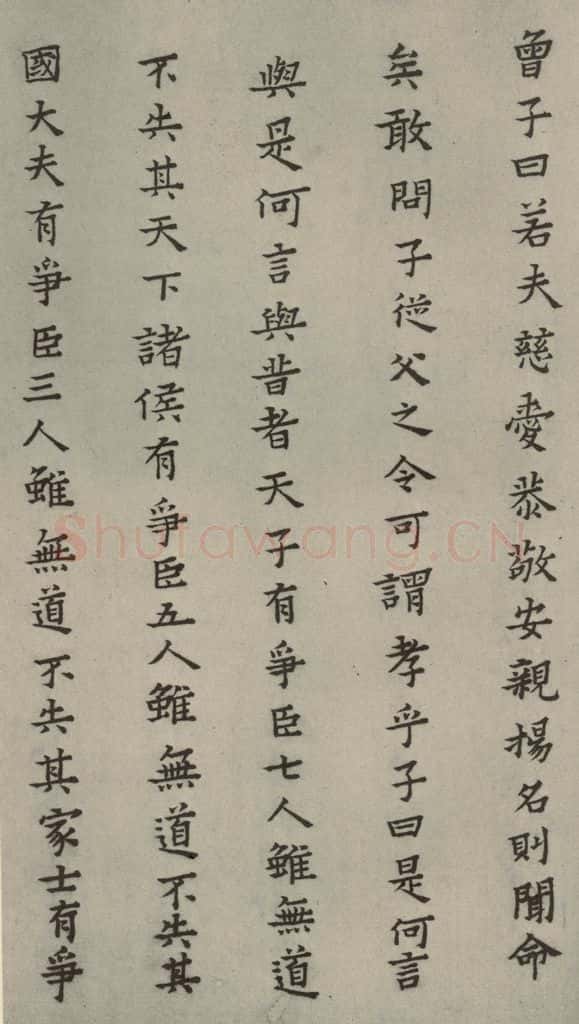 曾子曰若夫慈愛恭敬安親揚名則聞命
矣敢問子從父之令可謂孝乎子曰是何言
與是何言與昔者天子有爭臣七人雖無道
不失其天下諸侯有爭臣五人雖無道不失其
國大夫有爭臣三人雖無道不失其家士有爭
Shufawang.CN